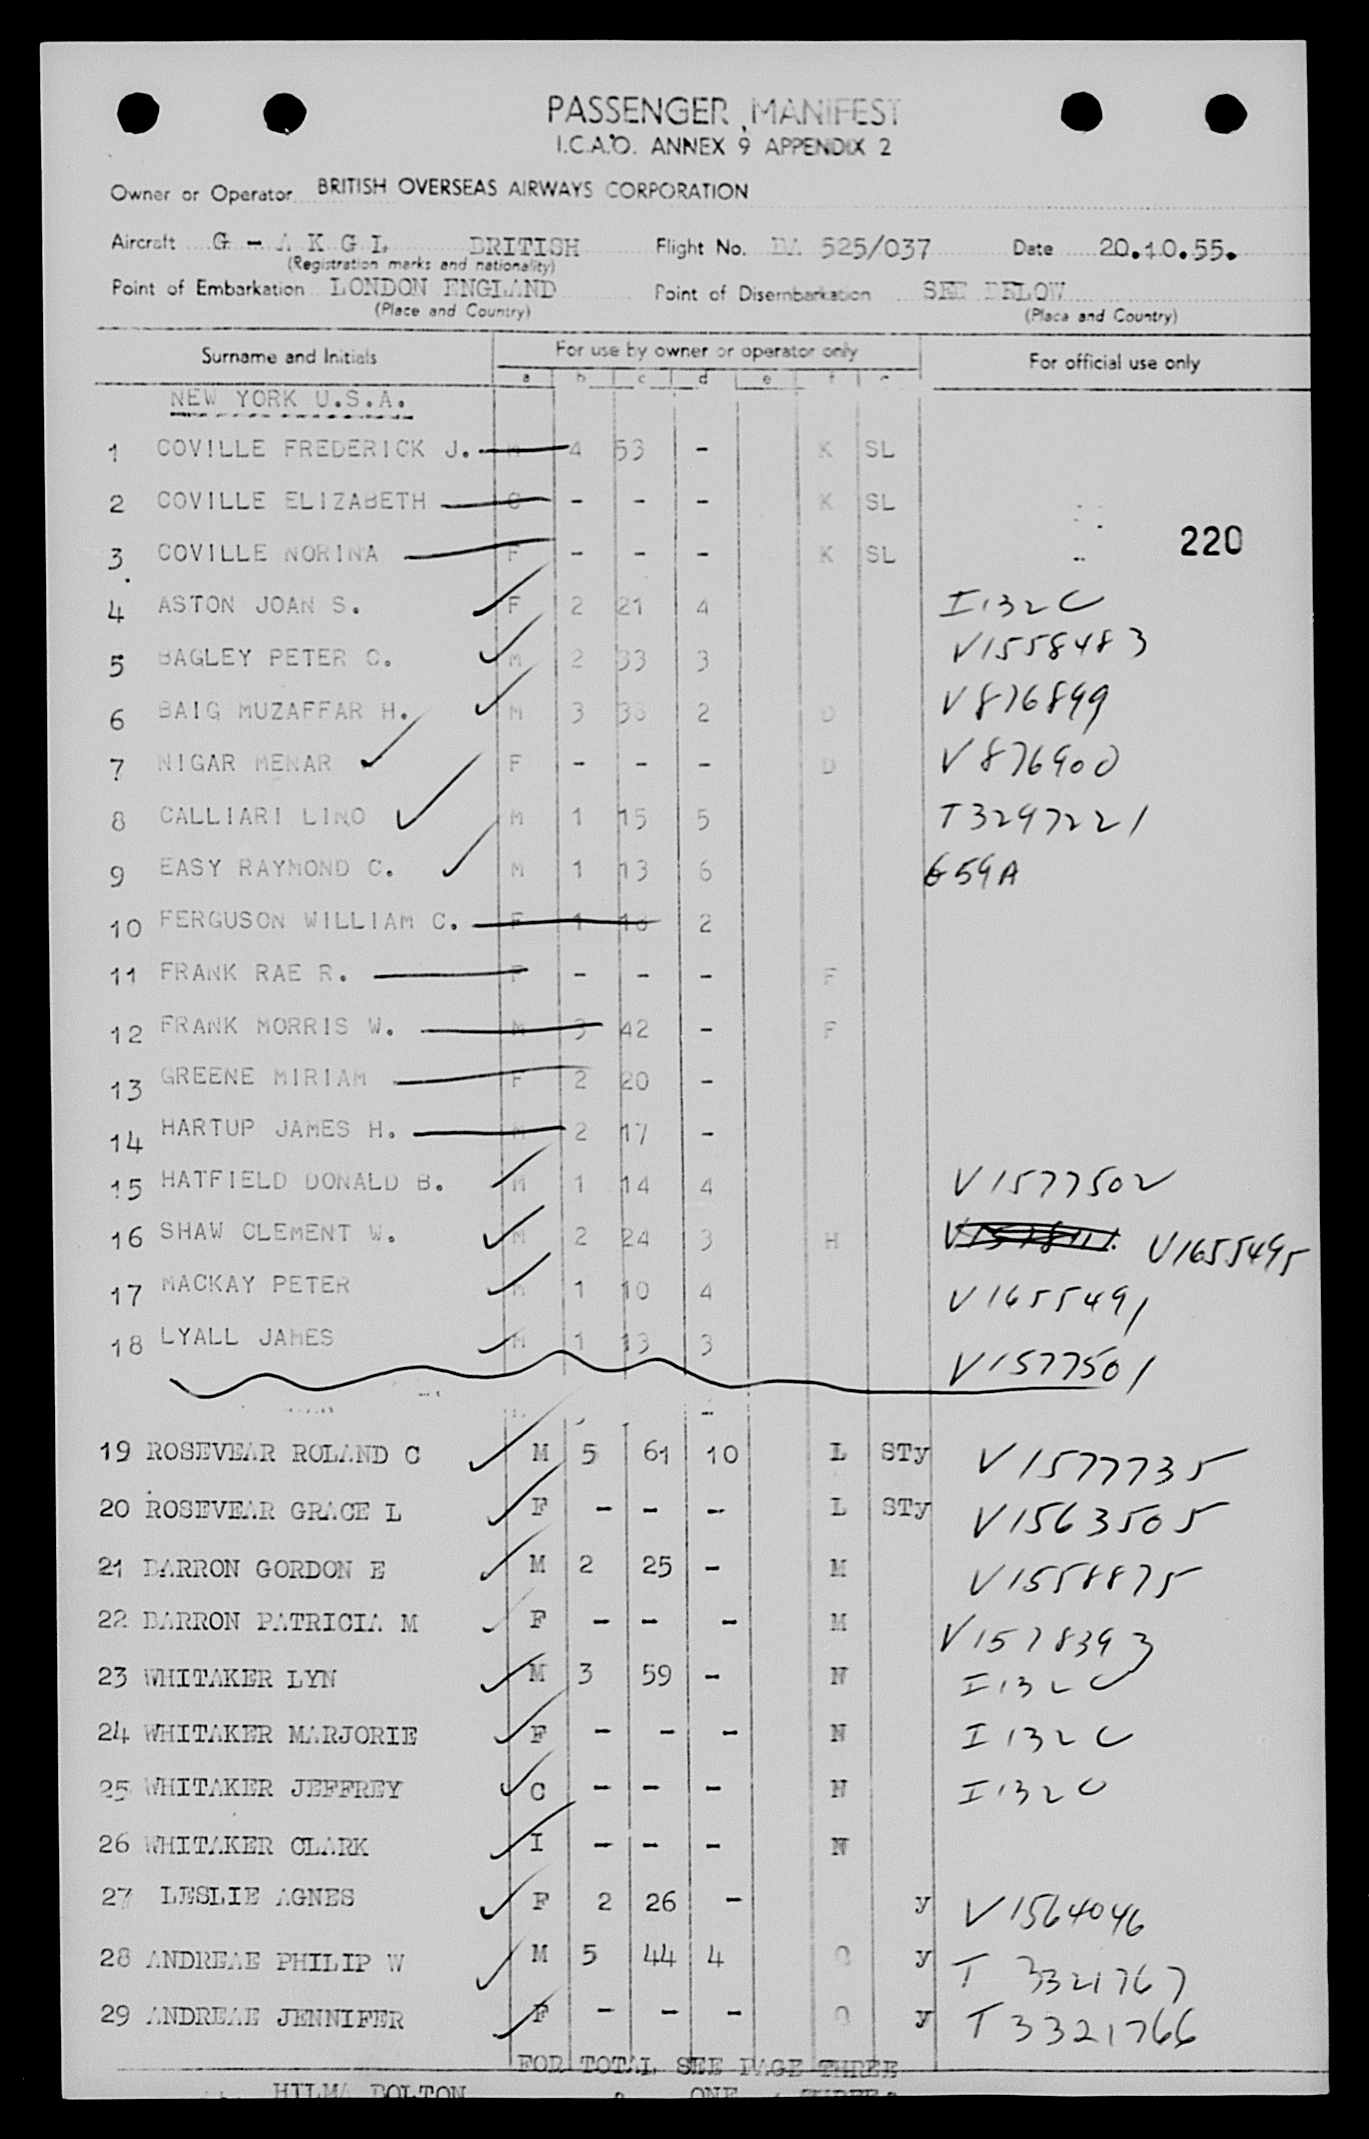 PASSENGER MANIFEST
I.C.A.O. ANNEX 9 APPENDIX 2
Owner or Operator BRITISH OVERSEAS AIRWAYS CORPORATION
Aircraft G - A K G L BRITISH Flight No. BA 525/037 Date 20.10.55.
(Registration marks and nationality)
Point of Embarkation LONDON ENGLAND Point of Disembarkation SEE BELOW
(Place and Country) (Place and Country)
Surname and Initials For use by owner or operator only For official use only
a b c d e f
NEW YORK U.S.A.
1 COVILLE FREDERICK J. M 4 53 - K SL
2 COVILLE ELIZABETH C - - - K SL
220
3 COVILLE NORINA F - - - K SL
4 ASTON JOAN S. F 2 21 4 I132C
5 BAGLEY PETER C. M 2 33 3 V1558483
6 BAIG MUZAFFAR H. M 3 38 2 D V876899
7 NIGAR MENAR F - - - D V876900
8 CALLIARI LINO M 1 15 5 T3297221
9 EASY RAYMOND C. M 1 13 6 659A
10 FERGUSON WILLIAM C. F 1 18 2
11 FRANK RAE R. F - - - F
12 FRANK MORRIS W. M 3 42 - F
13 GREENE MIRIAM F 2 20 -
14 HARTUP JAMES H. M 2 17 -
15 HATFIELD DONALD B. M 1 14 4 V1577502
16 SHAW CLEMENT W. M 2 24 3 H V1655495
17 MACKAY PETER M 1 10 4 V1655491
18 LYALL JAMES M 1 13 3 V1577501
19 ROSEVEAR ROLAND C M 5 61 10 L STy V1577735
20 ROSEVEAR GRACE L F - - - L STy V1563505
21 DARRON GORDON E M 2 25 - M V1558875
22 DARRON PATRICIA M F - - - M V1578393
23 WHITAKER LYN M 3 59 - N I132C
24 WHITAKER MARJORIE F - - - N I132C
25 WHITAKER JEFFREY C - - - N I132C
26 WHITAKER CLARK I - - - N
27 LESLIE AGNES F 2 26 - y V1564046
28 ANDREAE PHILIP W M 5 44 4 O y T 3321767
29 ANDREAE JENNIFER F - - - O y T3321766
FOR TOTAL SEE PAGE THREE
HILMA BOLTON ONE THREE